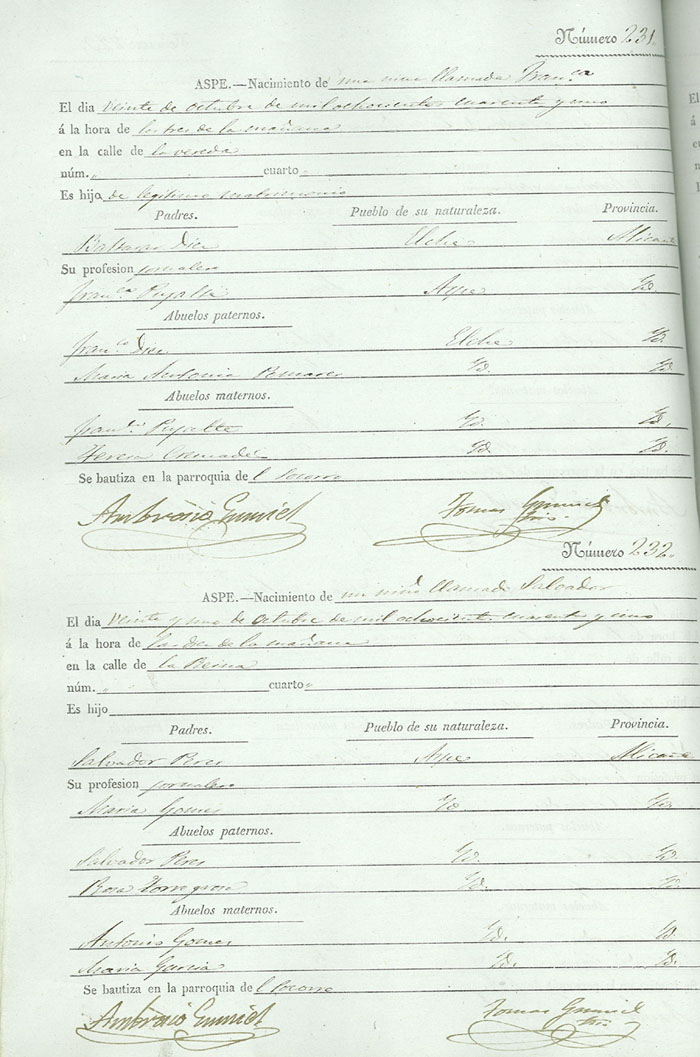 Número 231.
ASPE.—Nacimiento de una niña llamada Fran.ca
El dia veinte de octubre de mil ochocientos cuarenta y uno
á la hora de las tres de la mañana
en la calle de la vereda
núm. „ cuarto „
Es hijo de legitimo matrimonio
Padres. Pueblo de su naturaleza. Provincia.
Baltasar Diez Elche Alicante
Su profesion jornalero
Fran.ca Pujalte Aspe Yd.
Abuelos paternos.
Fran.co Diez Elche Yd.
Maria Antonia Pomares Yd. Yd.
Abuelos maternos.
Fran.co Pujalte Yd. Yd.
Teresa Cremades Yd. Yd.
Se bautiza en la parroquia de l Socorro
Ambrosio Gumiel Tomas Gumiel
Número 232.
ASPE.—Nacimiento de un niño llamado Salvador
El dia veinte y uno de octubre de mil ochocientos cuarenta y uno
á la hora de las diez de la mañana
en la calle de la Reina
núm. „ cuarto „
Es hijo
Padres. Pueblo de su naturaleza. Provincia.
Salvador Peres Aspe Alicante
Su profesion jornalero
Maria Gomes Yd. Yd.
Abuelos paternos.
Salvador Peres Yd. Yd.
Rosa Torregrosa Yd. Yd.
Abuelos maternos.
Antonio Gomes Yd. Yd.
Maria Garcia Yd. Yd.
Se bautiza en la parroquia de l Socorro
Ambrosio Gumiel Tomas Gumiel